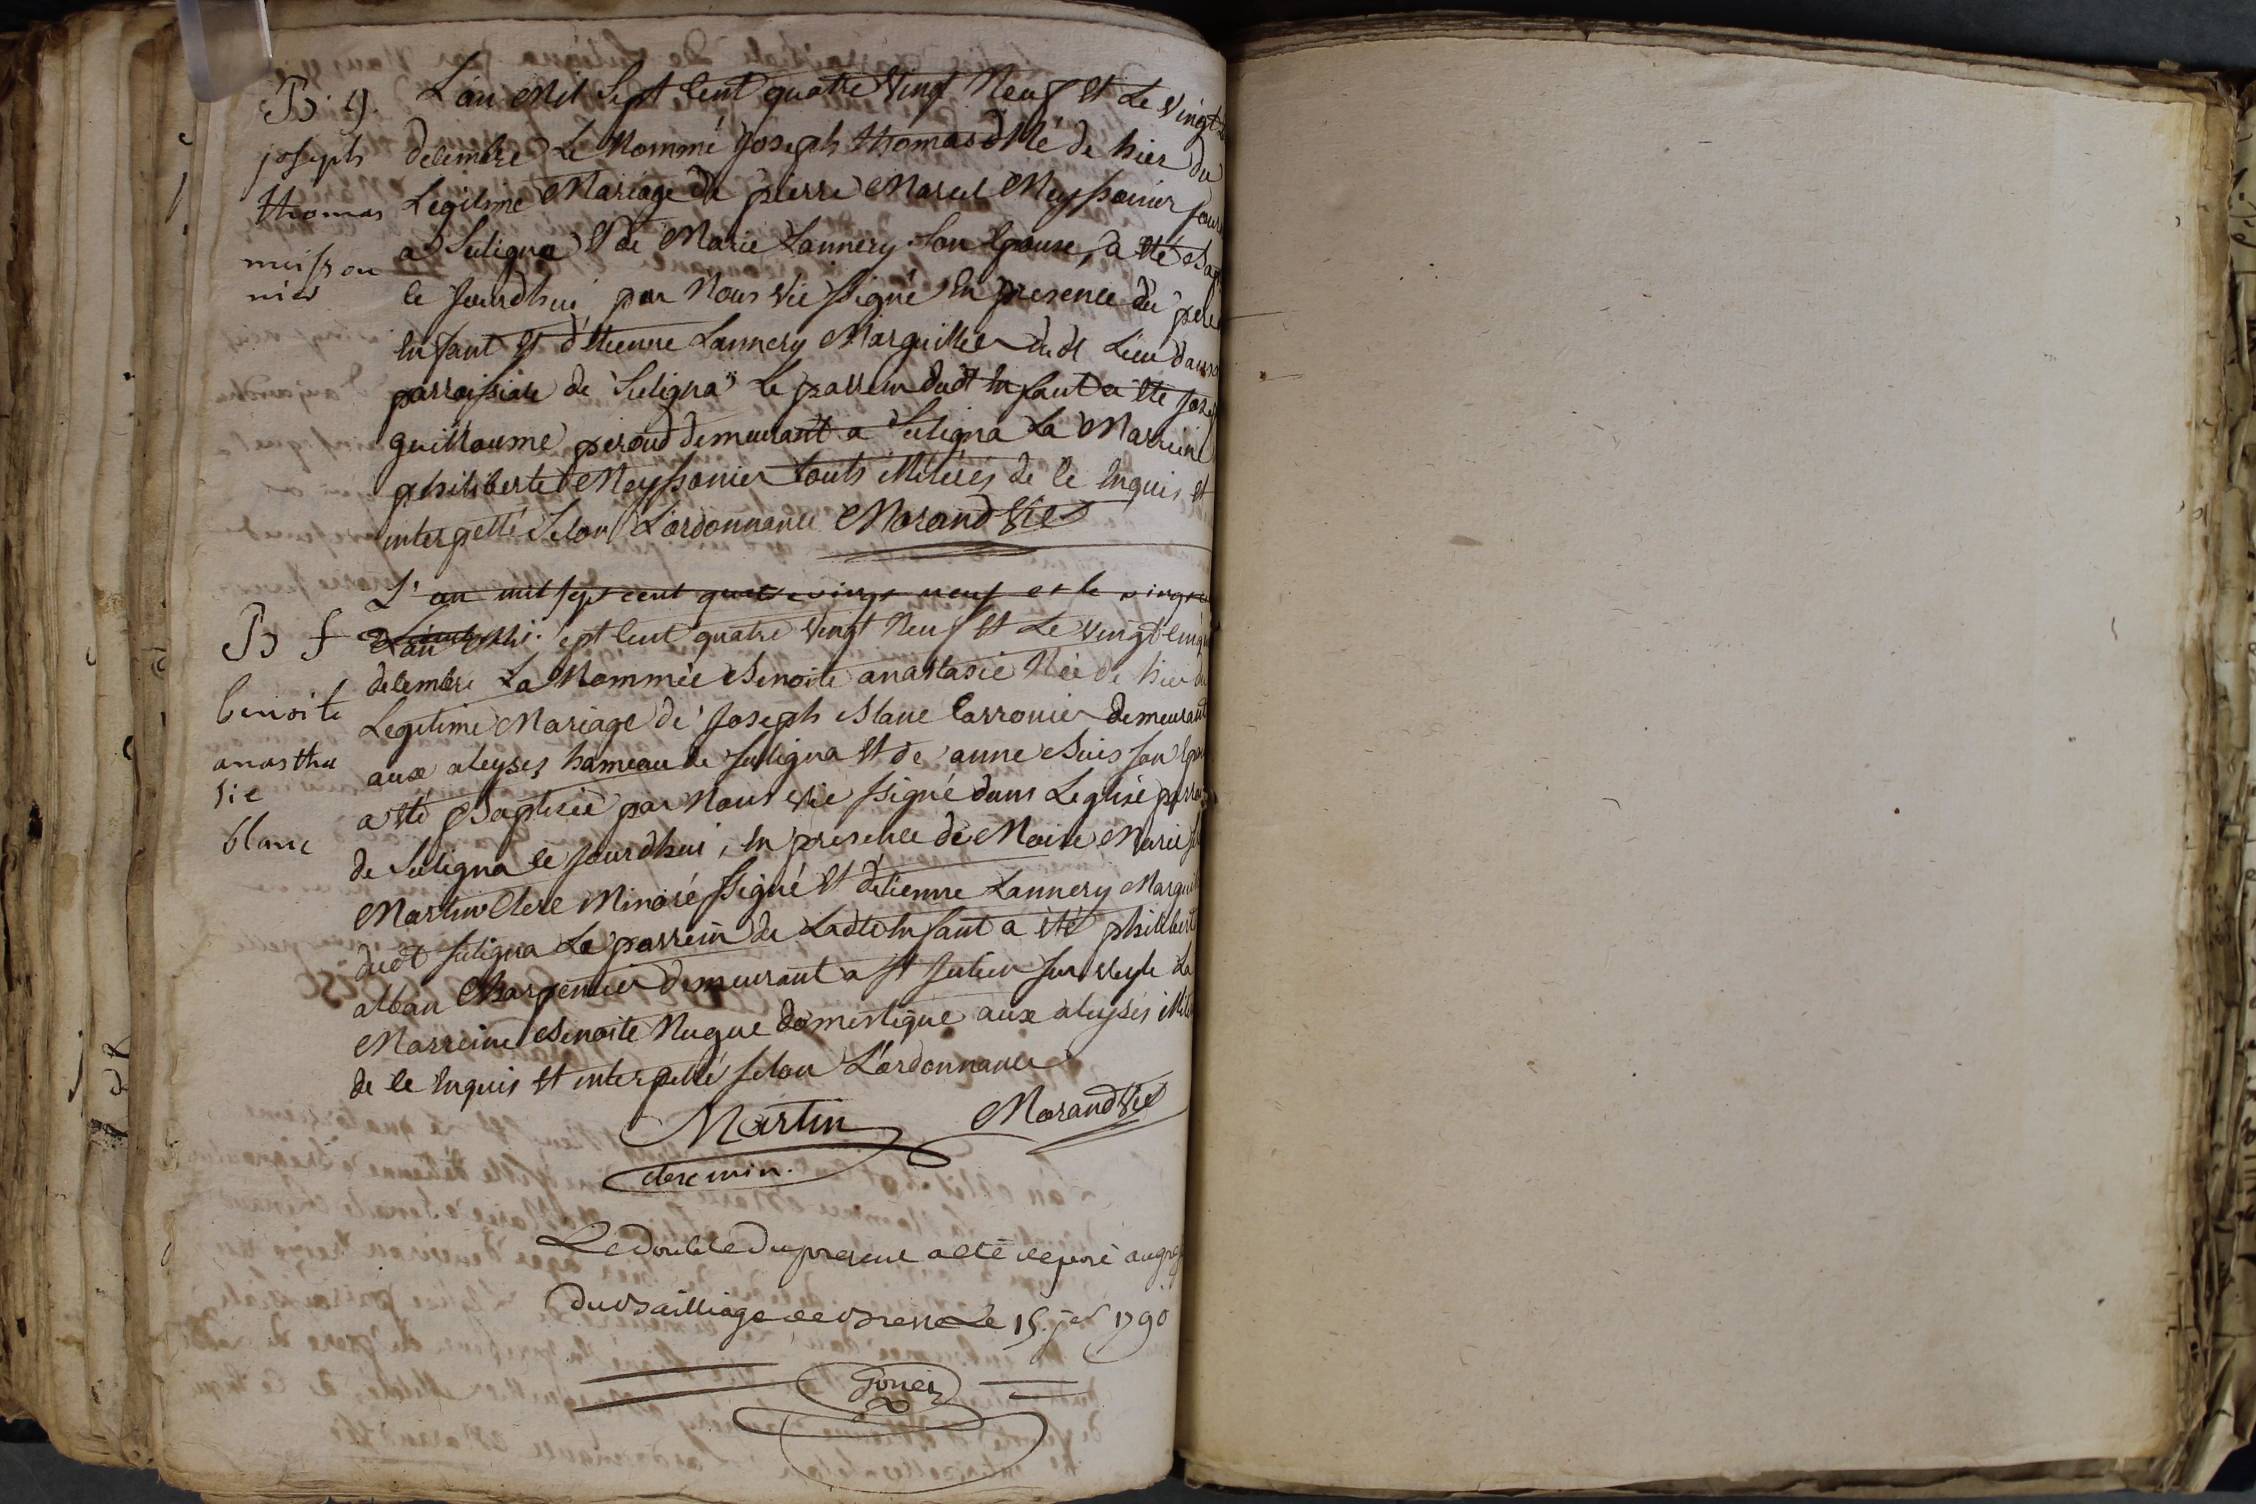 B. g.
joseph
thomas
meisson
nier
L'an Mil Sept Cent quatre Vingt Neuf Et Le Vingt
decembre Le Nommé Joseph thomas Né de hier du
Legitime Mariage de pierre Marcel Meyssonier
a Suligna Et de Marie Lannery Son Epouse, a été
le Jourdhui par Nous Vic ssigné En presence du pere
Enfant Et d'Etienne Lannery Marguillier dudt Lieu dans
parroissiale de Suligna Le parrein dudt Enfant a été Joseph
guillaume peroud demeurant a Suligna La Marreine
philiberte Meyssonier touts illiterés de Ce Enquis Et
interpellé Selon L'ordonnance Morand Vic
L'an mil sept cent quatre vingt neuf et le vingt
B f
benoite
anastha
sie
blanc
L'an Mil sept Cent quatre Vingt Neuf Et Le Vingt Cinq
decembre La Nommée Benoite anastasie Née de hier du
Legitime Mariage de Joseph Blanc Carronier demeurant
aux aleyses hameau de Suligna Et de anne Buis son
a été Baptisée par Nous Vic ssigné dans Leglise
de Suligna le Jourdhui, En presence de Maire Marie
Martin Clerc Minoré ssigné Et d'Etienne Lannery
dudt Suligna Le parrein de Ladte Enfant a été philibert
alban Charpentier demeurant a st Julien sur Veyle La
Marreine Benoite Nugue domestique aux aleyses
de Ce Enquis Et interpellé selon L'ordonnance
Martin Morand Vic
clerc min.
Le double du present a eté deposé au
du Bailliage de Bresse Le 15. jer 1790